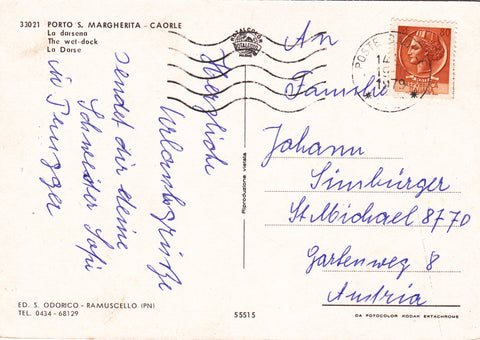 33021 PORTO S. MARGHERITA - CAORLE
La darsena
The wet-dock
La Darse
Herzliche
Urlaubsgrüße
sendet dir deine
Schwester Sofi
ED. S. ODORICO - RAMUSCELLO (PN)
TEL. 0434 - 68129
Riproduzione vietata
55515
POSTE
14
1979
An
Familie
Johann
Simbürger
St Michael 8770
Gartenweg 8
Austria
DA FOTOCOLOR KODAK EKTACHROME